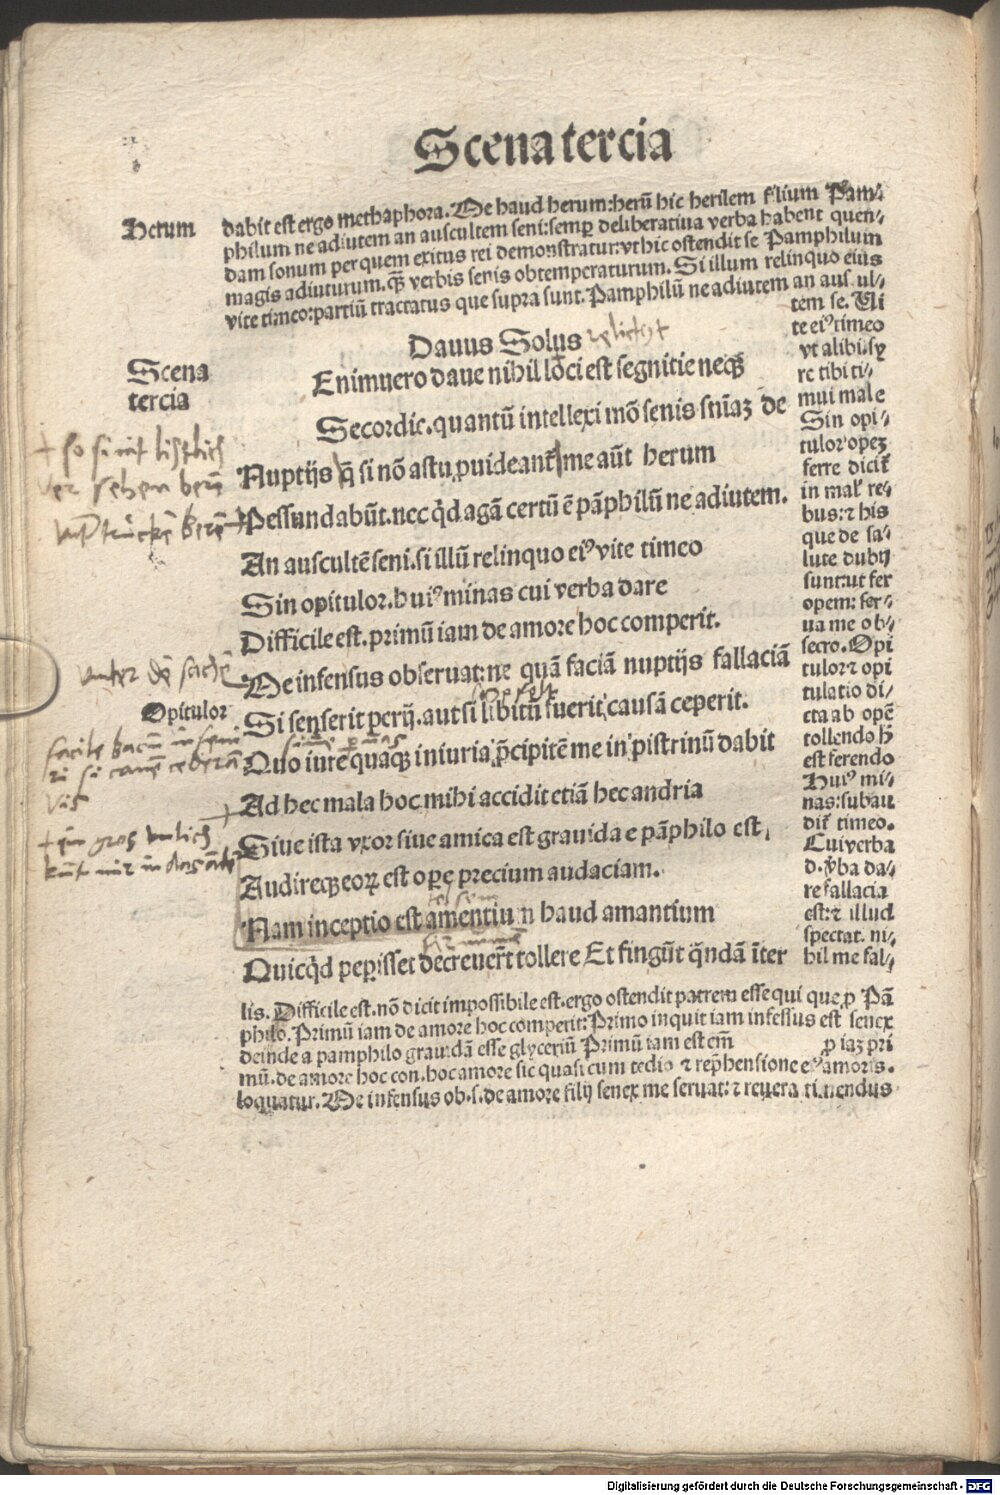 Scena tercia
Herum
dabit est ergo methaphora. Me haud herum: herū hic herilem filium Pam⸗
philum ne adiutem an auscultem seni: semꝑ deliberatiua verba habent quen⸗
dam sonum per quem exitus rei demonstratur: vt hic ostendit se Pamphilum
magis adiuturum. qꝫ verbis senis obtemperaturum. Si illum relinquo eius
vite timeo: partiū tractatus que supra sunt. Pamphilū ne adiutem an aus ul⸗
tem se. Ui
te eiꝰ timeo
vt alibi. sy
re tibi ti⸗
mui male
Sin opi⸗
tulor opeꝫ
ferre dicit᷑
in mal' re⸗
bus: ⁊ his
que de sa⸗
lute dubij
sunt: ut fer
opem: ser⸗
ua me ob⸗
secro. Opi
tulor ⁊ opi
tulatio di⸗
cta ab opē
tollendo ł
est ferendo
Huiꝰ mi⸗
nas: subau
dit᷑ timeo.
Cui verba
d. v̄ba da⸗
re fallacia
est: ⁊ illud
spectat. ni⸗
hil me fal⸗
Dauus Solus
Scena
tercia
Enimuero daue nihil loci est segnitie neqꝫ
Secordie. quantū intellexi mō senis sn̄iaꝫ de
Nuptijs q̄ si nō astu ꝓuideant᷑ me aūt herum
Pessundabūt. nec qd̓ agā certū ē pāphilū ne adiutem.
An auscultē seni. si illū relinquo eiꝰ vite timeo
Sin opitulor. huiꝰ minas cui verba dare
Difficile est. primū iam de amore hoc comperit.
Me infensus obseruat: ne quā faciā nuptijs fallaciā
Opitulor
Si senserit perij. aut si libitū fuerit, causā ceperit.
Quo iure quaqꝫ iniuria p̄cipitē me in pistrinū dabit
Ad hec mala hoc mihi accidit etiā hec andria
Siue ista vxor siue amica est grauida e pāphilo est,
Audireqꝫ eoꝝ est opę precium audaciam.
Nam inceptio est amentiu n haud amantium
Quicqd̓ peperisset decreuer̄t tollere Et fingūt qn̄dā īter
lis. Difficile est. nō dicit impossibile est. ergo ostendit patrem esse qui que ꝓ Pā
philo. Primū iam de amore hoc comperit: Primo inquit iam infessus est senex
deinde a pamphilo grauidā esse glyceriū Primū iam est em̄ ꝓ iaꝫ pri
mū. de amore hoc con. hoc amore sic quasi cum tedio ⁊ rep̄hensione eiꝰ amoris.
loquatur. Me infensus ob. s. de amore filij senex me seruat: ⁊ reuera timendus
Digitalisierung gefördert durch die Deutsche Forschungsgemeinschaft - DFG